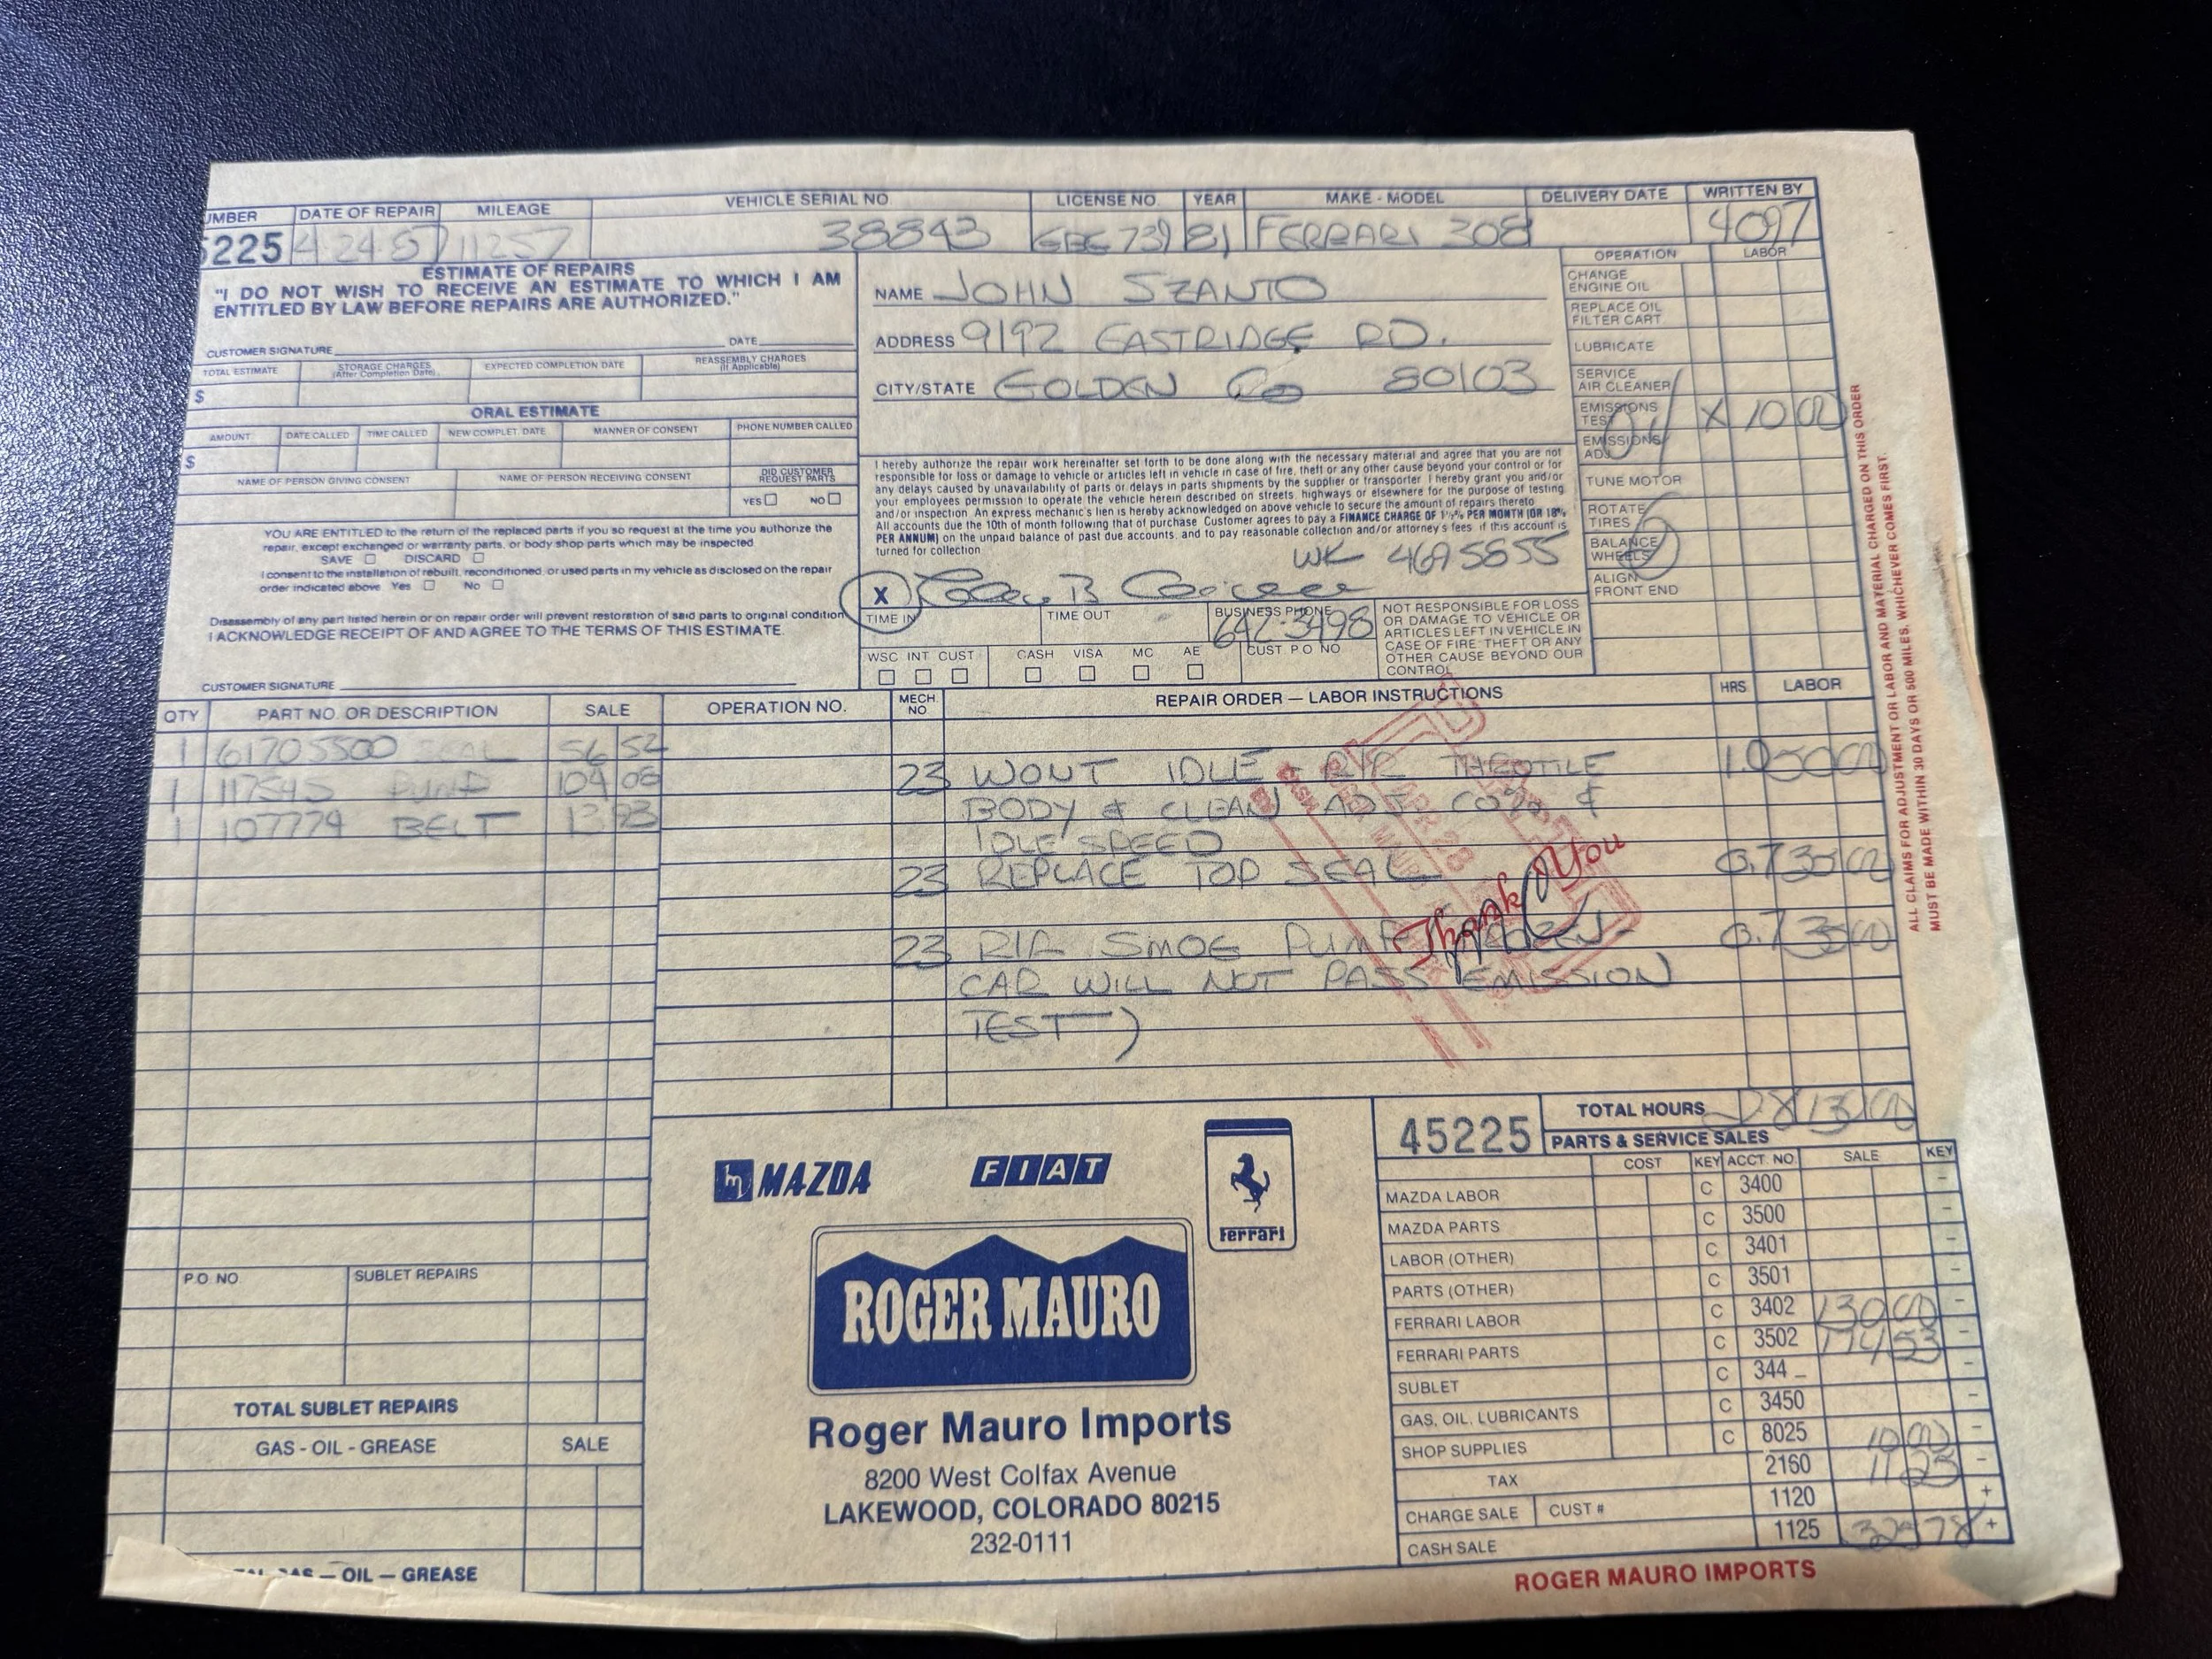 UMBER DATE OF REPAIR MILEAGE VEHICLE SERIAL NO. LICENSE NO. YEAR MAKE - MODEL DELIVERY DATE WRITTEN BY
5225 4-24-87 11257 38843 81 FERRARI 308 4097
ESTIMATE OF REPAIRS
"I DO NOT WISH TO RECEIVE AN ESTIMATE TO WHICH I AM
ENTITLED BY LAW BEFORE REPAIRS ARE AUTHORIZED."
CUSTOMER SIGNATURE DATE
TOTAL ESTIMATE STORAGE CHARGES (After Completion Date) EXPECTED COMPLETION DATE REASSEMBLY CHARGES (If Applicable)
$
ORAL ESTIMATE
AMOUNT DATE CALLED TIME CALLED NEW COMPLET. DATE MANNER OF CONSENT PHONE NUMBER CALLED
$
NAME OF PERSON GIVING CONSENT NAME OF PERSON RECEIVING CONSENT DID CUSTOMER REQUEST PARTS
YES NO
YOU ARE ENTITLED to the return of the replaced parts if you so request at the time you authorize the
repair, except exchanged or warranty parts, or body shop parts which may be inspected.
SAVE DISCARD
I consent to the installation of rebuilt, reconditioned, or used parts in my vehicle as disclosed on the repair
order indicated above. Yes No
Disassembly of any part listed herein or on repair order will prevent restoration of said parts to original condition.
I ACKNOWLEDGE RECEIPT OF AND AGREE TO THE TERMS OF THIS ESTIMATE.
CUSTOMER SIGNATURE
NAME JOHN SZANTO
ADDRESS 9192 EASTRIDGE RD.
CITY/STATE GOLDEN CO 80103
I hereby authorize the repair work hereinafter set forth to be done along with the necessary material and agree that you are not
responsible for loss or damage to vehicle or articles left in vehicle in case of fire, theft or any other cause beyond your control or for
any delays caused by unavailability of parts or delays in parts shipments by the supplier or transporter. I hereby grant you and/or
your employees permission to operate the vehicle herein described on streets, highways or elsewhere for the purpose of testing
and/or inspection. An express mechanic's lien is hereby acknowledged on above vehicle to secure the amount of repairs thereto.
All accounts due the 10th of month following that of purchase. Customer agrees to pay a FINANCE CHARGE OF 1½% PER MONTH (OR 18%
PER ANNUM) on the unpaid balance of past due accounts, and to pay reasonable collection and/or attorney's fees if this account is
turned for collection.
WK 4695855
X
TIME IN TIME OUT BUSINESS PHONE
642-3498
WSC INT CUST CASH VISA MC AE CUST. P.O. NO.
NOT RESPONSIBLE FOR LOSS
OR DAMAGE TO VEHICLE OR
ARTICLES LEFT IN VEHICLE IN
CASE OF FIRE, THEFT OR ANY
OTHER CAUSE BEYOND OUR
CONTROL.
OPERATION LABOR
CHANGE ENGINE OIL
REPLACE OIL FILTER CART.
LUBRICATE
SERVICE AIR CLEANER
EMISSIONS TEST X 10 00
EMISSIONS ADJ.
TUNE MOTOR
ROTATE TIRES
BALANCE WHEELS
ALIGN FRONT END
ALL CLAIMS FOR ADJUSTMENT OR LABOR AND MATERIAL CHARGED ON THIS ORDER
MUST BE MADE WITHIN 30 DAYS OR 500 MILES, WHICHEVER COMES FIRST.
QTY PART NO. OR DESCRIPTION SALE
1 61705500 SEAL 56 52
1 117545 PUMP 104 08
1 107774 BELT 13 93
OPERATION NO. MECH. NO. REPAIR ORDER — LABOR INSTRUCTIONS HRS. LABOR
23 WONT IDLE - R/R THROTTLE 1.0 50 00
BODY & CLEAN ADJ CO% &
IDLE SPEED
23 REPLACE TOP SEAL 0.7 35 00
23 R/R SMOG PUMP 0.7 35 00
CAR WILL NOT PASS EMISSION
TEST)
Thank You
P.O. NO. SUBLET REPAIRS
TOTAL SUBLET REPAIRS
GAS - OIL - GREASE SALE
GAS — OIL — GREASE
mazda FIAT Ferrari
ROGER MAURO
Roger Mauro Imports
8200 West Colfax Avenue
LAKEWOOD, COLORADO 80215
232-0111
45225 TOTAL HOURS
PARTS & SERVICE SALES
COST KEY ACCT. NO. SALE KEY
MAZDA LABOR C 3400 -
MAZDA PARTS C 3500 -
LABOR (OTHER) C 3401 -
PARTS (OTHER) C 3501 -
FERRARI LABOR C 3402 130 00 -
FERRARI PARTS C 3502 174 53 -
SUBLET C 344_ -
GAS, OIL, LUBRICANTS C 3450 -
SHOP SUPPLIES C 8025 10 00 -
TAX 2160 11 23 -
CHARGE SALE CUST # 1120 +
CASH SALE 1125 +
ROGER MAURO IMPORTS